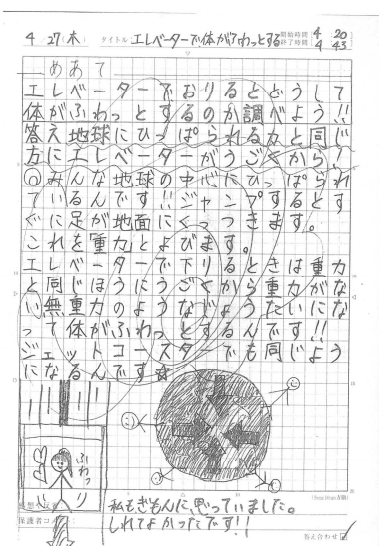 4 27(木) タイトル エレベーターで体がふわっとする 開始時間 4 20
終了時間 4 43
めあて
エレベーターでおりるとどうして
体がふわっとするのか調べよう!!
答え地球にひっぱられる力と同じ
方にエレベーターがうごくから!
みんな地球の中心にひっぱられ
ているんです!!ジャンプするとす
ぐに足が地面にくっつきます。
これを「重力」とよびます。
エレベーターで下りるときは重力
と同じほうにうごくから重力がな
い無重力のようなじょうたいにな
って体がふわっとするんです!!
ジェットコースターでも同じよう
になるんです☆
ふわっ
(8mm16mm方眼)
感想・反省
私もぎもんに思っていました。
保護者コメント
しれてよかったです!!
答え合わせ